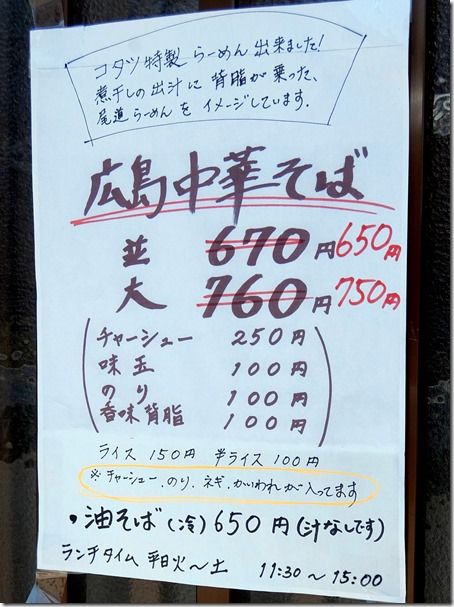 コダツ特製らーめん出来ました!
煮干しの出汁に背脂が乗った、
尾道らーめんをイメージしています.
広島中華そば
並 670円 650円
大 760円 750円
チャーシュー 250円
味玉 100円
のり 100円
香味背脂 100円
ライス 150円 半ライス 100円
※チャーシュー.のり.ネギ.かいわれが入ってます
・油そば(冷)650円(汁なしです)
ランチタイム 平日火〜土 11:30〜15:00